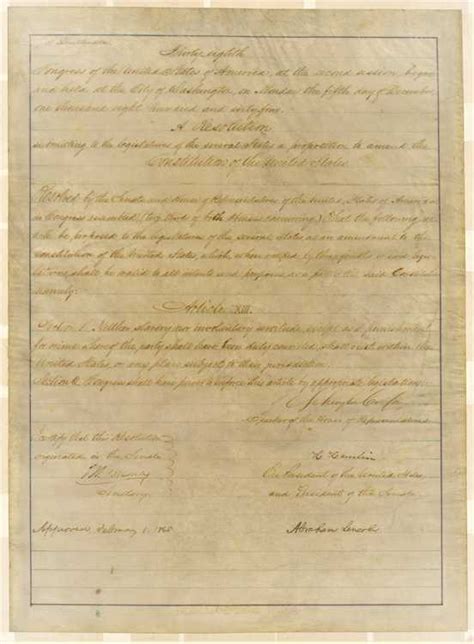 Congress of the United States of America, at the second session, begun
and held at the City of Washington, on Monday the fifth day of December
one thousand eight hundred and sixty-four.
A Resolution
submitting to the legislatures of the several States a proposition to amend the
Constitution of the United States.
Resolved by the Senate and House of Representatives of the United States of America
in Congress assembled, (two thirds of both Houses concurring,) That the following
be proposed to the legislatures of the several States as an amendment to the
Constitution of the United States, which, when ratified by three-fourths of said legis
latures shall be valid, to all intents and purposes, as a part of the said Constitution
namely:
Article XIII.
Section 1. Neither slavery nor involuntary servitude, except as a punishment
for crime whereof the party shall have been duly convicted, shall exist within the
United States, or any place subject to their jurisdiction.
Section 2. Congress shall have power to enforce this article by appropriate legislation.
Schuyler Colfax
Speaker of the House of Representatives
I certify that this Resolution
originated in the Senate
Secretary
H Hamlin
Vice President of the United States,
and President of the Senate
Approved, February 1. 1865.
Abraham Lincoln